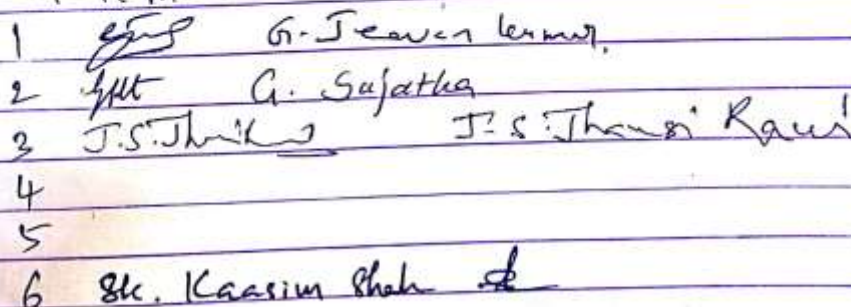 1 G. Jeevan kumar.
2 G. Sujatha
3 J.S. J.S. Jhansi Rani
4
5
6 Sk. Kaasim Shah